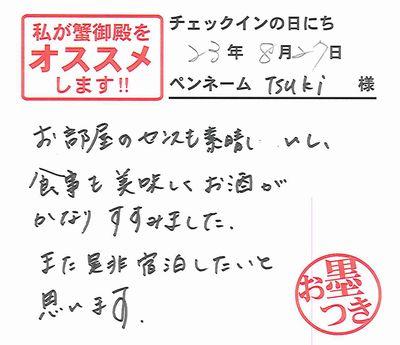 私が蟹御殿を
オススメ
します!!
チェックインの日にち
23年 8月27日
ペンネーム Tsuki 様
お部屋のセンスも素晴しいし、
食事も美味しくお酒が
かなりすすみました。
また是非宿泊したいと
思います。
お墨つき